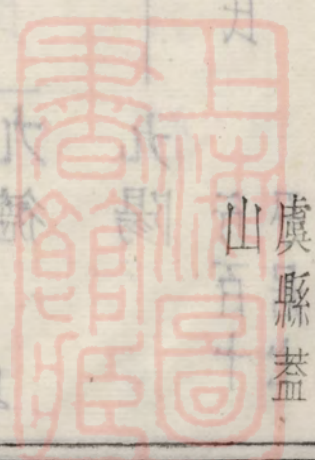 虞縣蓋
山
上海圖
書館藏